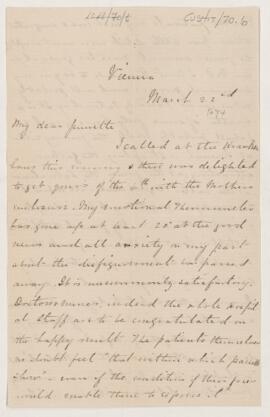 Vienna
March 22nd
1874
My dear Jeanette
I called at the
this morning & there was delighted
to get yours of the 6th with the Mothers
enclosure. My emotional Thermometer
has gone up at least 20° at the good
news and all anxiety on my part
about the disfigurement is passed
away. It is uncommonly satisfactory.
Doctors nurses, indeed the whole
al Staff are to be congratulated on
the happy result. The patients themselves
no doubt feel "that within which passeth
show" - even if the condition of their faces
would enable them to express it.